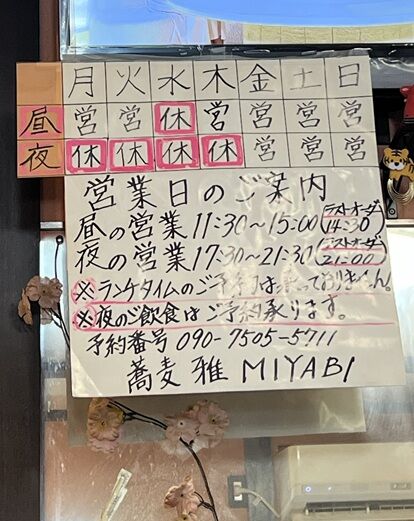 月 火 水 木 金 土 日
昼 営 営 休 営 営 営 営
夜 休 休 休 休 営 営 営
営業日のご案内
昼の営業 11:30〜15:00 (ラストオーダー 14:30)
夜の営業 17:30〜21:30 (ラストオーダー 21:00)
※ランチタイムのご予約は承っておりません。
※夜のご飲食はご予約承ります。
予約番号 090-7505-5711
蕎麦 雅 MIYABI